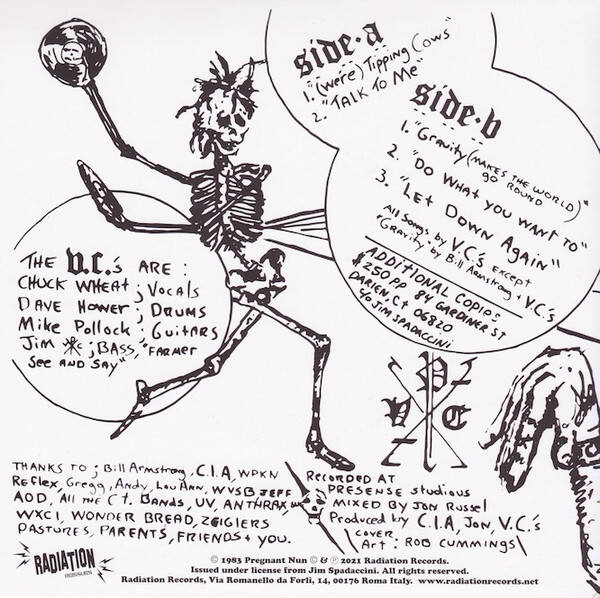 side·a
1. "(we're) Tipping Cows"
2. "Talk To Me"
side·b
1. "Gravity (makes the world)"
go round
2. "Do What you want to"
3. "Let Down Again"
All Songs by V.C.'s except
"Gravity" by Bill Armstrong · V.C.'s
Additional copies
$2.50 pp 84 Gardiner St
Darien Ct 06820
℅ Jim Spadaccini
The V.C.'s are :
Chuck Wheat ; Vocals
Dave Hower ; Drums
Mike Pollock : Guitars
Jim ; Bass, "Farmer
See and Say"
V
V C
Thanks to ; Bill Armstrong, C.I.A, WPKN
Reflex, Gregg, Andy, Lou Ann, WVSB Jeff
AOD, All the Ct. Bands, UV, Anthrax
WXCI, Wonder Bread, Zeiglers
Pastures, Parents, Friends + you.
Recorded at
Presense studious
Mixed by Jon Russel
Produced by C.I.A, Jon, V.C.'s
Cover
Art : Rob Cummings
RADIATION
© 1983 Pregnant Nun © & ℗ 2021 Radiation Records.
Issued under license from Jim Spadaccini. All rights reserved.
Radiation Records, Via Romanello da Forlì, 14, 00176 Roma Italy. www.radiationrecords.net